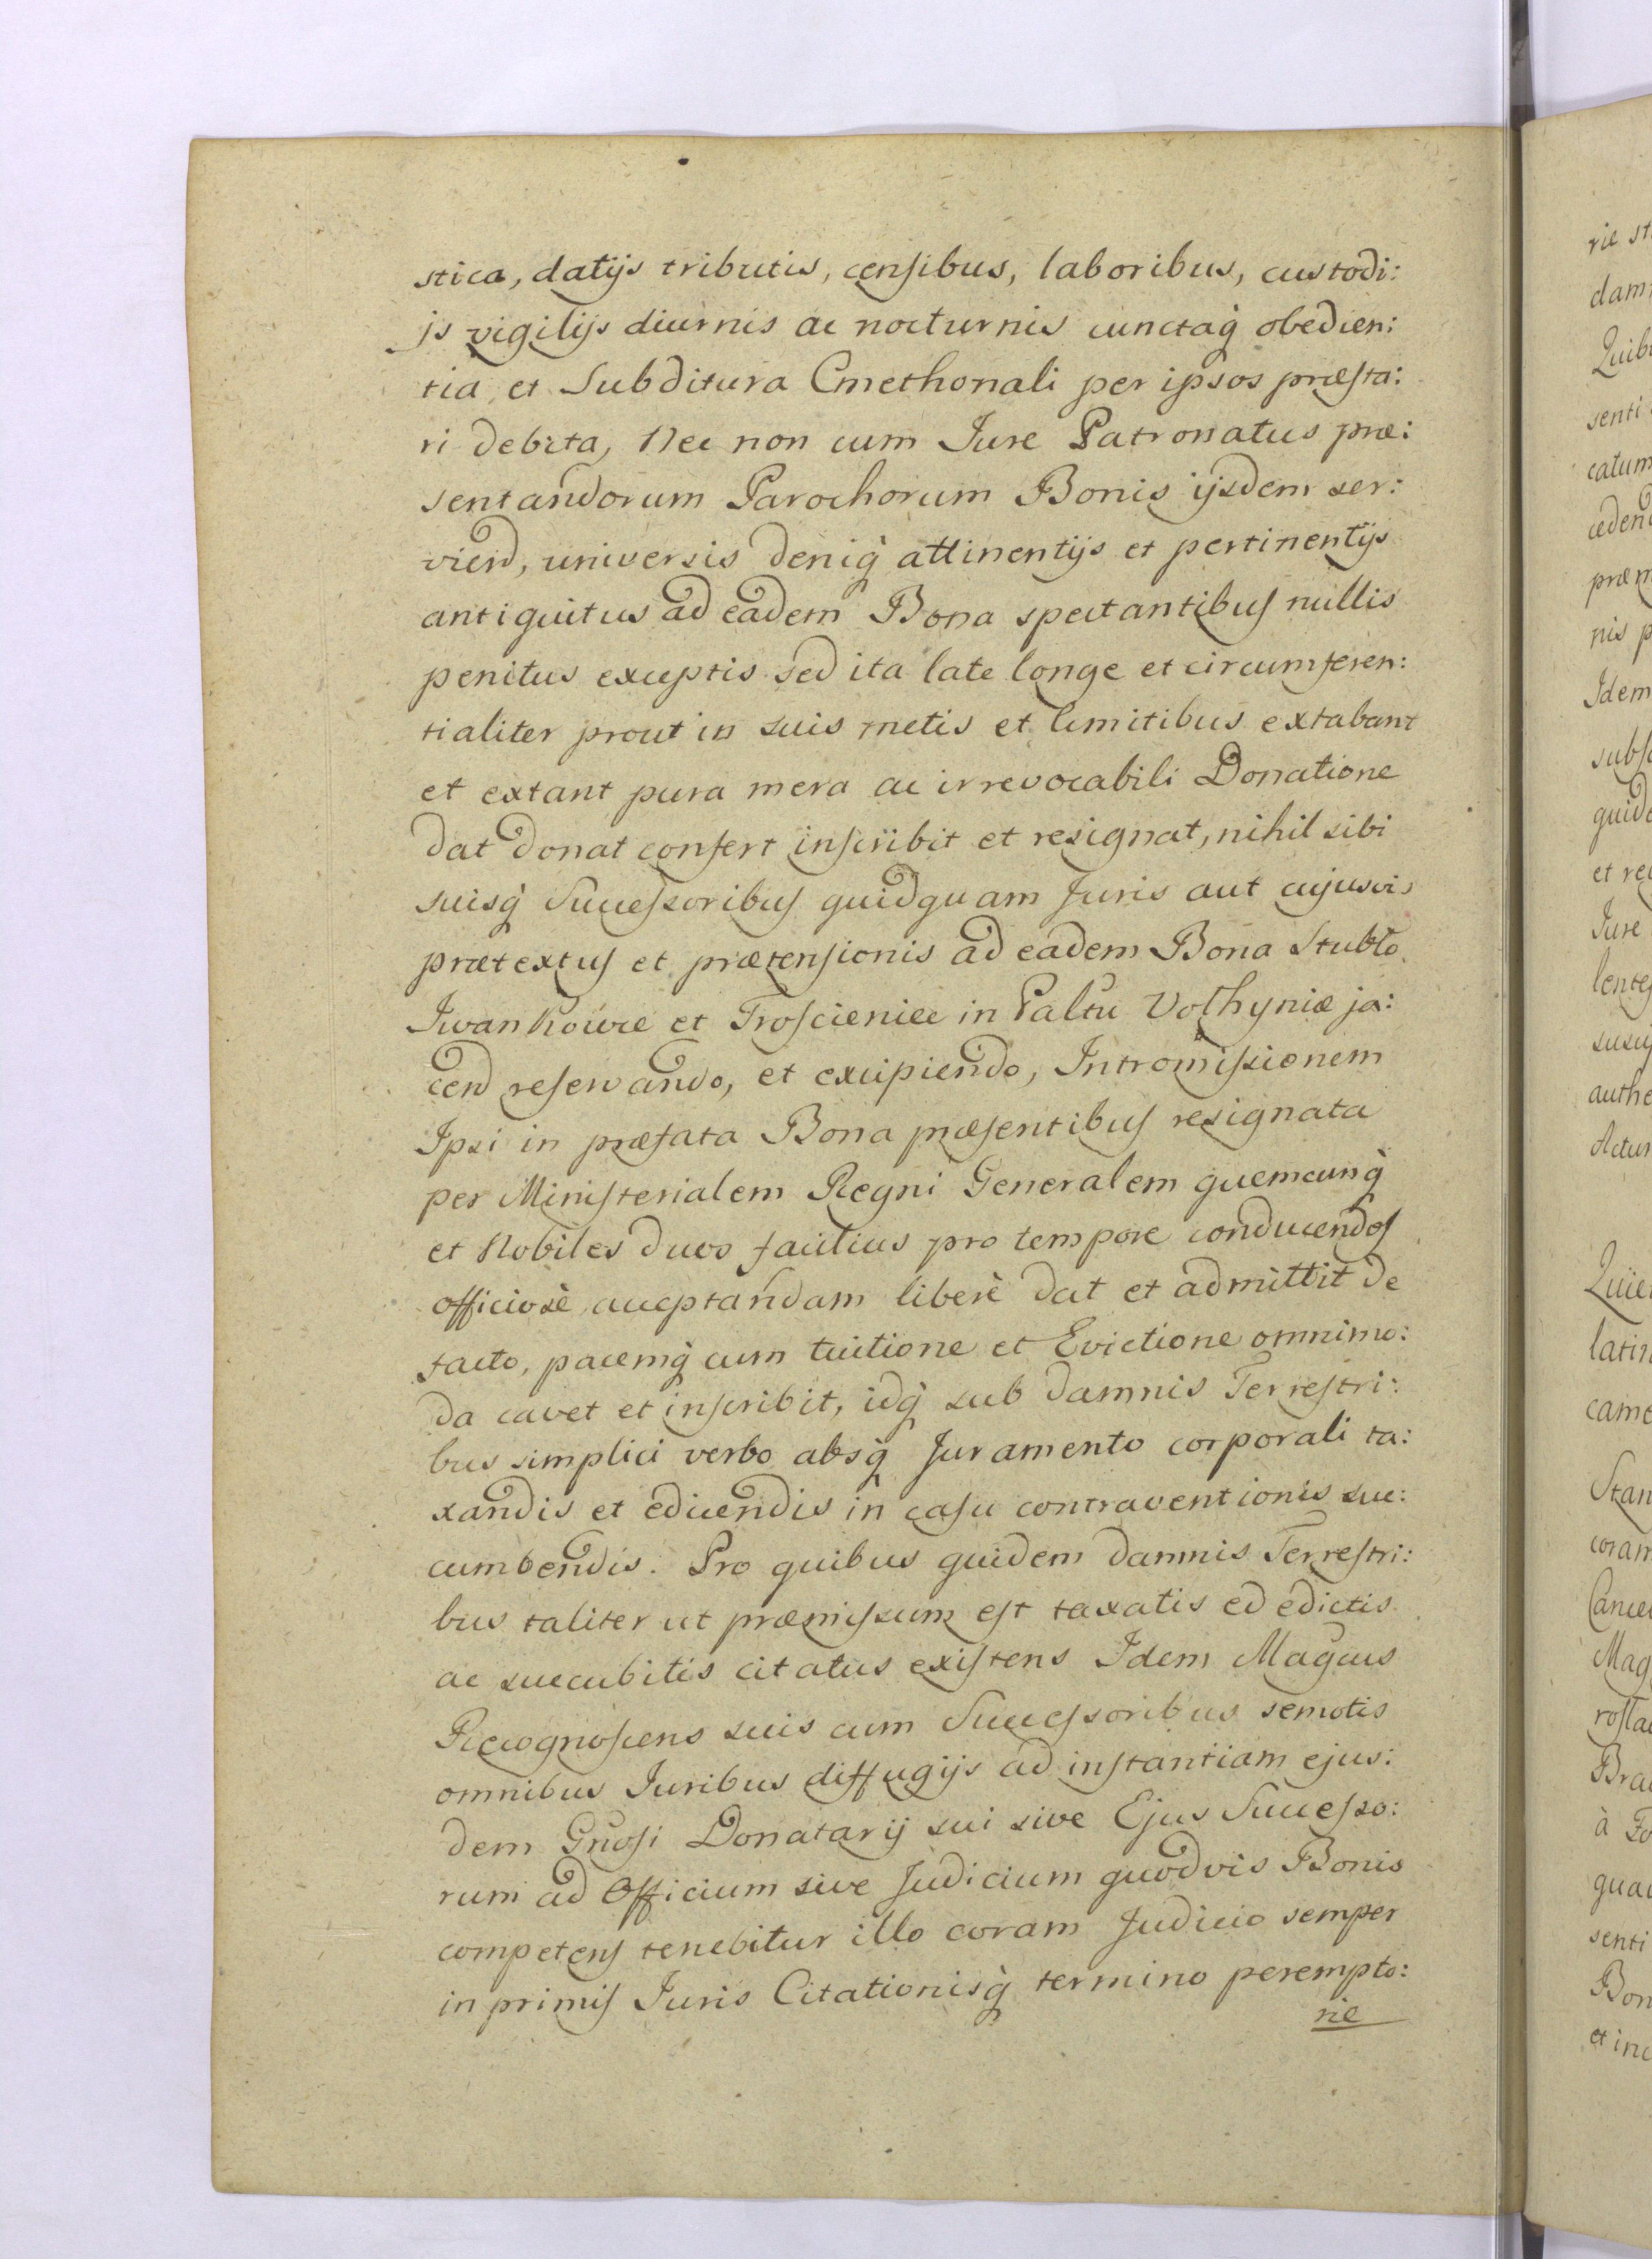 stica, datijs tributis, censibus, laboribus, custodi:
js vigilijs diurnis ac nocturnis cunctaq̀ obedien:
tia, et Subditura Cmethonali per ipsos præsta:
ri debita, Nec non cum Jure Patronatus præ:
sentandorum Parochorum Bonis ijsdem ser:
viend, universis deniq̀ attinentijs et pertinentijs
antiquitus ad eadem Bona spectantibus nullis
penitus exceptis sed ita late longe et circumferen:
tialiter prout in suis metis et limitibus extabant
et extant pura mera ac irrevocabili Donatione
dat donat confert inscribit et resignat, nihil sibi
suisq̀ Successoribus quidquam Juris aut cujusvis
prætextus et prætensionis ad eadem Bona Stubło
Iwankowce et Troscieniec in Paltu Volhyniæ ja:
cend reservando, et excipiendo, Intromissionem
Ipsi in præfata Bona præsentibus resignata
per Ministerialem Regni Generalem quemcunq̀
et Nobiles duos facilius pro tempore conducendos
officiosè acceptandam liberè dat et admittit de
facto, pacemq̀ cum tuitione et Evictione omnimo:
da cavet et inscribit, idq̀ sub damnis Terrestri:
bus simplici verbo absq̀ Juramento corporali ta:
xandis et edicendis in casu contraventionis suc:
cumbendis. Pro quibus quidem damnis Terrestri:
bus taliter ut præmissum est taxatis ed edictis
ac succubitis citatus existens Idem Magcus
Recognoscens suis cum Successoribus semotis
omnibus Juribus diffugijs ad instantiam ejus:
dem Gnosi Donatarij sui sive Ejus Successo:
rum ad Officium sive Judicium quodvis Bonis
competens tenebitur illo coram Judicio semper
in primis Juris Citationisq̀ termino perempto:
rie